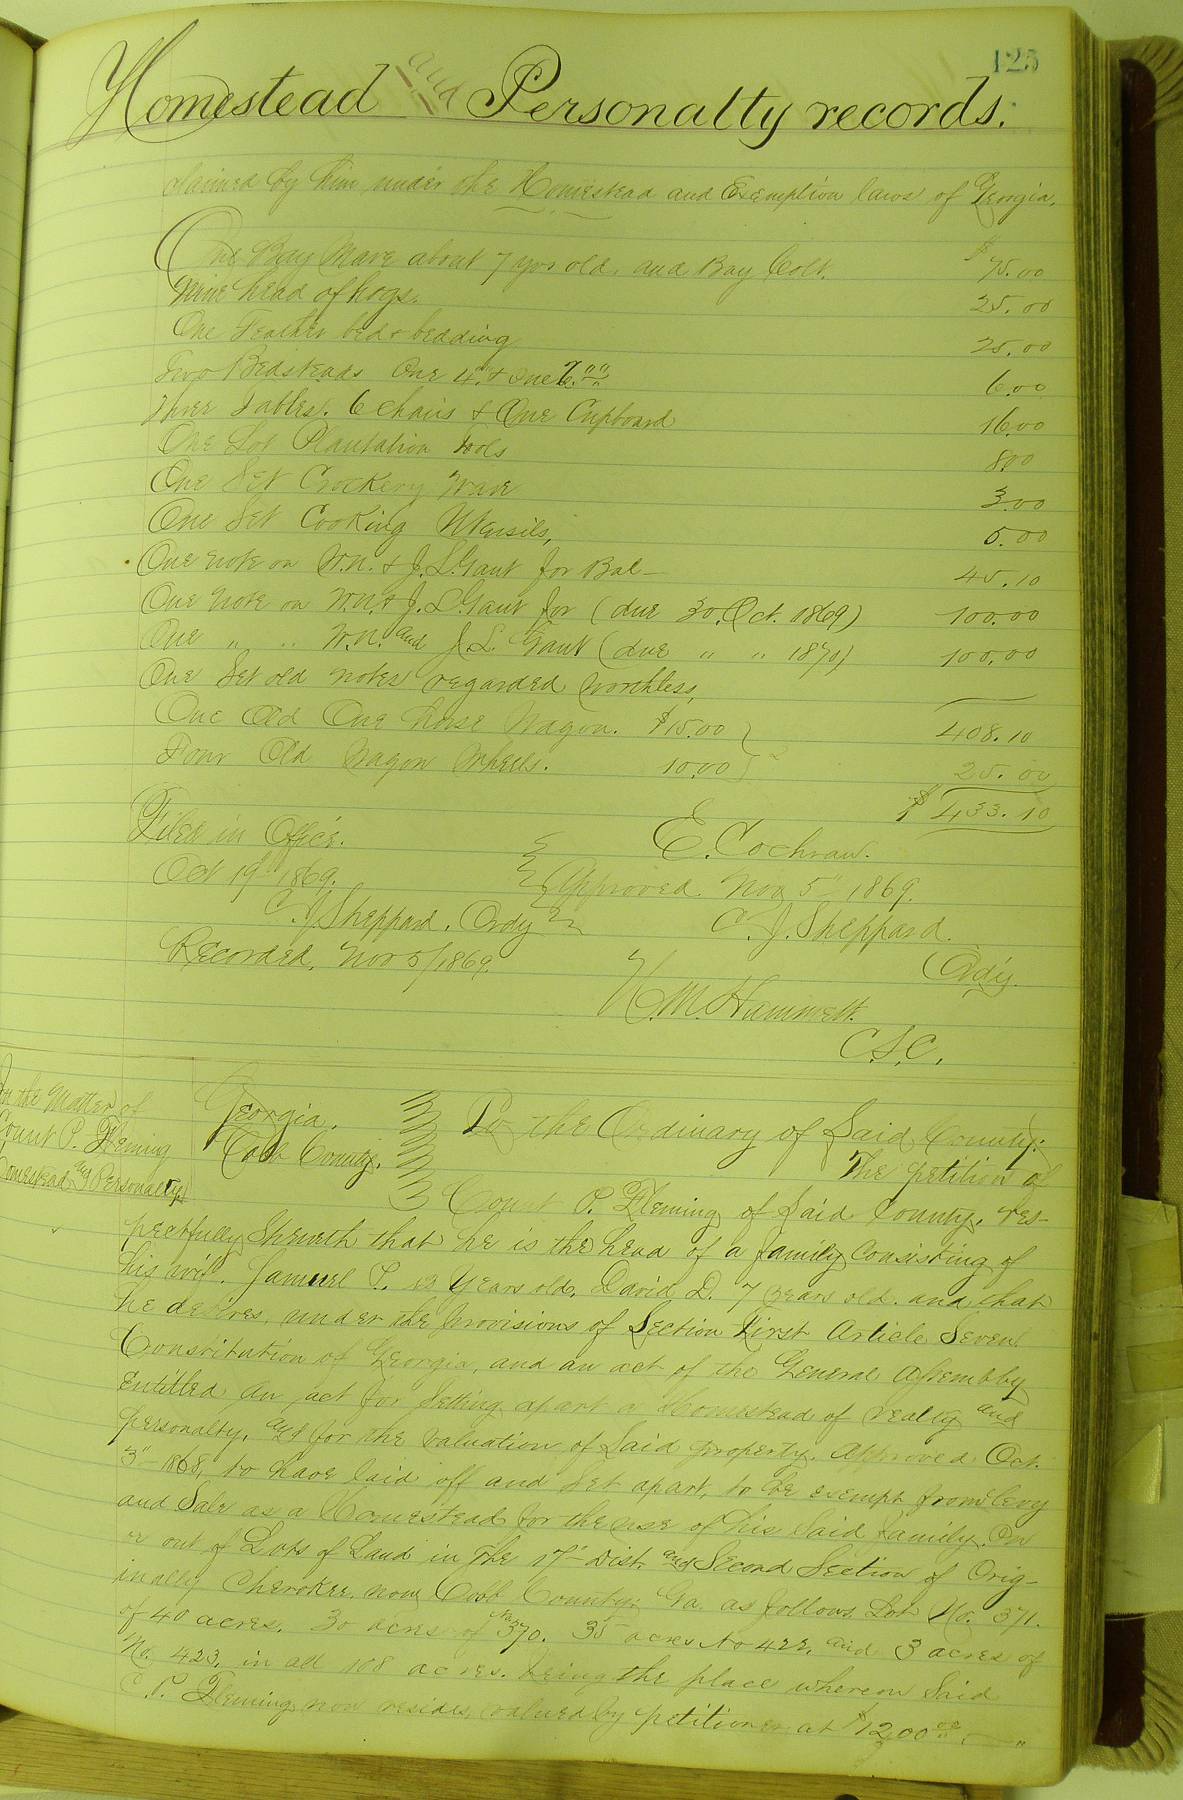 125
Homestead and Personalty records.
claimed by him under the Homestead and Exemption laws of Georgia.
One Bay Mare about 7 yrs old, and Bay Colt. $75.00
Nine head of hogs. 25.00
One Feather bed & bedding 25.00
Two Bedsteads One 4. & One 6.00
Three Tables. 6 chairs & One Cupboard 16.00
One Lot Plantation Tools 8.00
One Set Crockery Ware 3.00
One Set Cooking Utensils, 5.00
One note on W.N. & J. L. Gant for Bal— 45.10
One Note on W.N. & J. L. Gant for (due 30, Oct. 1869) 100.00
One " " W.N. and J. L. Gant (due " " 1870) 100.00
One Set old notes regarded worthless,
One Old One horse Wagon. $15.00 408.10
Four Old Wagon Wheels. 10.00 25.00
$433.10
Filed in Office. E. Cochran.
Oct 19th 1869. Approved. Nov 5" 1869.
C. J. Sheppard, Ordy C. J. Sheppard.
Recorded, Nov 5/1869. Ordy.
N. M. Hammett.
C.S.C.
In the Matter of
Count P. Fleming
Homestead and Personalty
Georgia,
Cobb County.
To the Ordinary of Said County:
The petition of
Count P. Fleming of Said County, res-
pectfully Sheweth that he is the head of a family Consisting of
his wife. Samuel P. 12 Years old, David D. 7 years old. and that
he desires, under the provisions of Section First Article Seven
Constitution of Georgia, and an act of the General Assembly
Entitled An act for Setting apart a Homestead of realty and
personalty, and for the valuation of Said property. Approved Oct.
3"—1868, to have laid off and Set apart, to be exempt from levy
and Sale as a Homestead for the use of his Said family. On
or out of Lots of Land in The 17"— Dist. and Second Section of Orig-
inally Cherokee, now Cobb County, Ga. as follows. Lot No. 371.
of 40 acres. 30 acres of No 370. 35 acres No 422. and 3 acres of
No. 423, in all 108 acres. being the place whereon Said
C. P. Fleming now resides, valued by petitioner at $1200.00